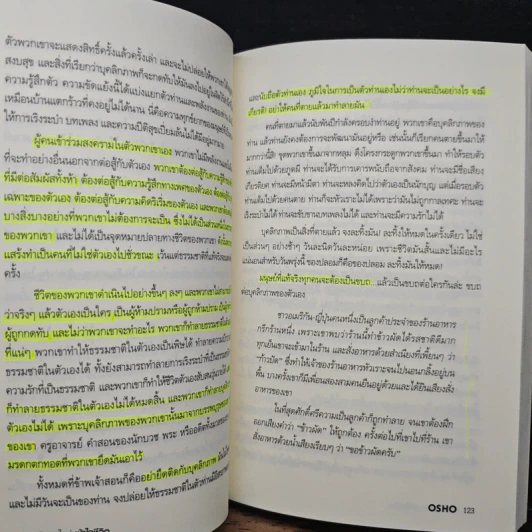 ตัวพวกเขาจะแสดงสิทธิ์ครั้งแล้วครั้งเล่า และจะไม่ปล่อยให้พวกเขา
สงบสุข และสิ่งที่เรียกว่าบุคลิกภาพก็จะกดทับให้มันลงไปอยู่ใน
ความรู้สึกตัว ความขัดแย้งนี้ได้แบ่งแยกตัวท่านและพลังงานของท่าน
เหมือนบ้านแตกร้าวที่คงอยู่ไม่ได้นาน นี่คือความทุกข์ยากของมนุษย์
ให้การเริงระบำ บทเพลง และความปีติสุขเปี่ยมล้นไม่ได้มีมากมาย
ผู้คนเข้าร่วมสงครามในตัวพวกเขาเอง พวกเขาไม่มีพลังงาน
ที่จะทำอย่างอื่นนอกจากต่อสู้กับตัวเอง พวกเขาต้องต่อสู้กับความรู้สึก
ที่มีต่อสัมผัสทั้งห้า ต้องต่อสู้กับความรู้สึกทางเพศของตัวเอง ต้องต่อสู้
เฉพาะของตัวเอง ต้องต่อสู้กับความคิดริเริ่มของตัวเอง และต้อง
บางสิ่งบางอย่างที่พวกเขาไม่ต้องการจะเป็น ซึ่งไม่ได้เป็นส่วนหนึ่ง
ของพวกเขา และไม่ได้เป็นจุดหมายปลายทางชีวิตของพวกเขา ดังนั้น
แสร้งทำเป็นคนที่ไม่ใช่ตัวเองไปชั่วขณะ เว้นแต่ธรรมชาติที่แท้จริง
ครั้ง
ชีวิตของพวกเขาดำเนินไปอย่างขึ้นๆ ลงๆ และพวกเขาไม่
ว่าจริงๆ แล้วตัวเองเป็นใคร เป็นผู้ห้ามปรามหรือผู้ถูกห้ามปราม เป็นผู้
ผู้ถูกกดทับ และไม่ว่าพวกเขาจะทำอะไร พวกเขาก็ทำลายธรรมชาติ
ที่แน่ๆ พวกเขาทำให้ธรรมชาติในตัวเองเป็นพิษได้ ทำลายความ
ในตัวเองได้ ทั้งยังสามารถทำลายการเริงระบำที่เป็นธรรมชาติ
ความรักที่เป็นธรรมชาติ และพวกเขาก็ทำให้ชีวิตตัวเองสับสนวุ่นวาย
ก็ทำลายธรรมชาติในตัวเองไม่ได้หมดสิ้น และพวกเขาก็ทำลายบุคลิก
ตัวเองไม่ได้ เพราะบุคลิกภาพของพวกเขานั้นมาจากบรรพบุรุษ
ของเขา ครูอาจารย์ คำสอนของนักบวช พระ หรืออดีตทั้งมวล
มรดกตกทอดที่พวกเขายึดมันเอาไว้
ทั้งหมดที่ข้าพเจ้าสอนก็คืออย่ายึดติดกับบุคลิกภาพ มันยืม
และไม่มีวันจะเป็นของท่าน จงปล่อยให้ธรรมชาติในตัวท่านมีอิสระ
และนับถือตัวท่านเอง ภูมิใจในการเป็นตัวท่านเองไม่ว่าท่านจะเป็นอย่างไร จงมี
เกียรติ! อย่าให้คนที่ตายแล้วมาทำลายมัน
คนที่ตายมาแล้วนับพันปีกำลังครอบงำท่านอยู่ พวกเขาคือบุคลิกภาพของ
ท่าน แล้วท่านยังคงต้องการจะพัฒนามันอยู่หรือ เช่นนั้นก็เรียกคนตายขึ้นมาให้
มากกว่านี้สิ! ขุดพวกเขาขึ้นมาจากหลุม ดึงโครงกระดูกพวกเขาขึ้นมา ทำให้รอบตัว
ท่านเต็มไปด้วยคนตาย แล้วท่านจะได้รับความเคารพนับถือจากสังคม ท่านจะมีชื่อเสียง
เกียรติยศ ท่านจะมีหน้ามีตา ท่านจะหลงคิดไปว่าตัวเองเป็นนักบุญ แต่เมื่อรอบตัว
ท่านเต็มไปด้วยคนตาย ท่านก็จะหัวเราะไม่ได้เพราะว่ามันไม่ถูกกาลเทศะ ท่านจะ
เริงระบำไม่ได้ ท่านจะขับขานบทเพลงไม่ได้ และท่านจะมีความรักไม่ได้
บุคลิกภาพเป็นสิ่งที่ตายแล้ว จงละทิ้งมัน! ละทิ้งให้หมดในครั้งเดียว ไม่ใช่
เป็นส่วนๆ อย่างช้าๆ วันละนิดวันละหน่อย เพราะชีวิตมันสั้นและไม่มีอะไร
แน่นอนสำหรับวันพรุ่งนี้ ของปลอมก็คือของปลอม ละทิ้งมันให้หมด!
มนุษย์ที่แท้จริงทุกคนจะต้องเป็นขบถ...แล้วเป็นขบถต่อใครกันล่ะ ขบถ
ต่อบุคลิกภาพของตัวเอง
ชาวอเมริกัน-ญี่ปุ่นคนหนึ่งเป็นลูกค้าประจำของร้านอาหาร
กรีกร้านหนึ่ง เพราะเขาพบว่าร้านนี้ทำข้าวผัดได้รสชาติดีมาก
ทุกเย็นเขาจะเข้ามาในร้าน และสั่งอาหารด้วยสำเนียงที่เพี้ยนๆ ว่า
“ก้าวผัด” ซึ่งทำให้เจ้าของร้านอาหารหัวเราะจนไปนอนกลิ้งอยู่บน
พื้น บางครั้งเขาก็มีเพื่อนสองสามคนยืนอยู่ด้วยและได้ยินเสียงสั่ง
อาหารของเขา
ในที่สุดศักดิ์ศรีความเป็นลูกค้าก็ถูกทำลาย จนเขาต้องฝึก
ออกเสียงคำว่า “ข้าวผัด” ให้ถูกต้อง ครั้งต่อไปที่เขาไปที่ร้าน เขา
สั่งอาหารด้วยน้ำเสียงเรียบๆ ว่า “ขอข้าวผัดครับ”
OSHO 123